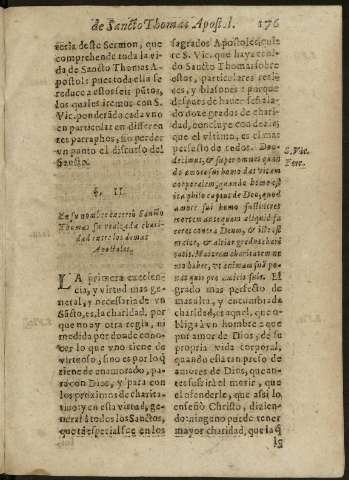 de Sancto Thomas Apost. I. 176
teria deste Sermon, que
comprehende toda la vi-
da de Sancto Thomas A-
postol: pues toda ella se
reduce a estos seis pũtos,
los quales iremos con S.
Vic. ponderãdo cada vno
en particular en differen
tes parraphos, por no perder
vn punto el discurso del
Sancto.
§. II.
En su nombre descriuio Sancto
Thomas su realçada chari-
dad entre los demas
Apostoles.
LA primera excelen-
cia, y virtud mas ge-
neral, y necessaria de vn
Sãcto, es la charidad, por
que no ay otra regla, ni
medida por donde cono-
cer lo que vno tiene de
virtuoso, sino es por lo q̃
tiene de enamorado, pa-
ra con Dios, y para con
los proximos de charita-
tiuo: y en esta virtud, ge-
neral à todos los Sanctos,
que tã especial fue en los
sagrados Apostoles, quie
re S. Vic. que haya sido
Sancto Thomas
estos, particulares reali-
es, y blasones: porque
despues de hauer señala-
do doze grados de chari-
dad, concluye con dezir,
que el vltimo, es el mas
perfecto de todos. Duo-
decimus, & supremus est quan
do amore sui homo dat vitam
corporalem, quando homo est
ita philocaptus de Deo, quod
amore sui homo susstineret
mortem antequam aliquid fa
ceret contra Deum, & iste est
maior, & altior gradus chari
tatis. Maiorem charitatem ne
mo habet, vt animam suã po-
nat quis pro amicis suis. El
grado mas perfecto de
mas alta, y encumbrada
charidad, es aquel, que o-
bliga à vn hombre a que
por amor de Dios, de su
propria vida corporal,
quando està tan preso de
amores de Dios, que an-
tes sufrirà el morir, que
el ofenderle, que assi lo
enseñò Christo, dizien-
do: ninguno puede tener
mayor charidad, que la q̃
lg
S. Vic.
Ferr.